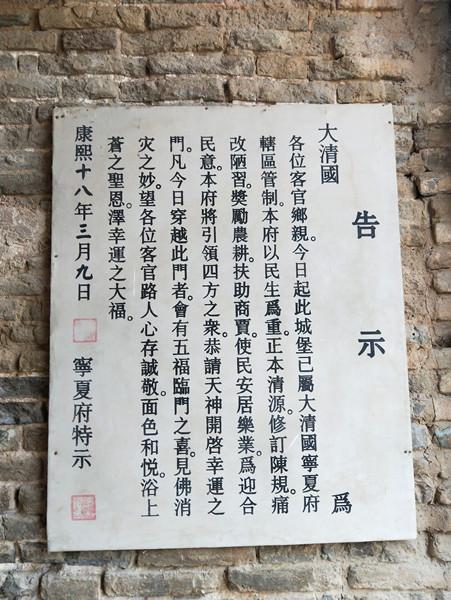 告示
大清國
爲
各位客官鄉親。今日起此城堡已屬大清國寧夏府
轄區管制。本府以民生爲重。正本清源。修訂陳規。痛
改陋習。獎勵農耕。扶助商賈。使民安居樂業。爲迎合
民意。本府將引領四方之衆。恭請天神開啓幸運之
門。凡今日穿越此門者。會有五福臨門之喜。見佛消
灾之妙。望各位客官路人心存誠敬。面色和悦。浴上
蒼之聖恩。澤幸運之大福。
康熙十八年三月九日 寧夏府特示